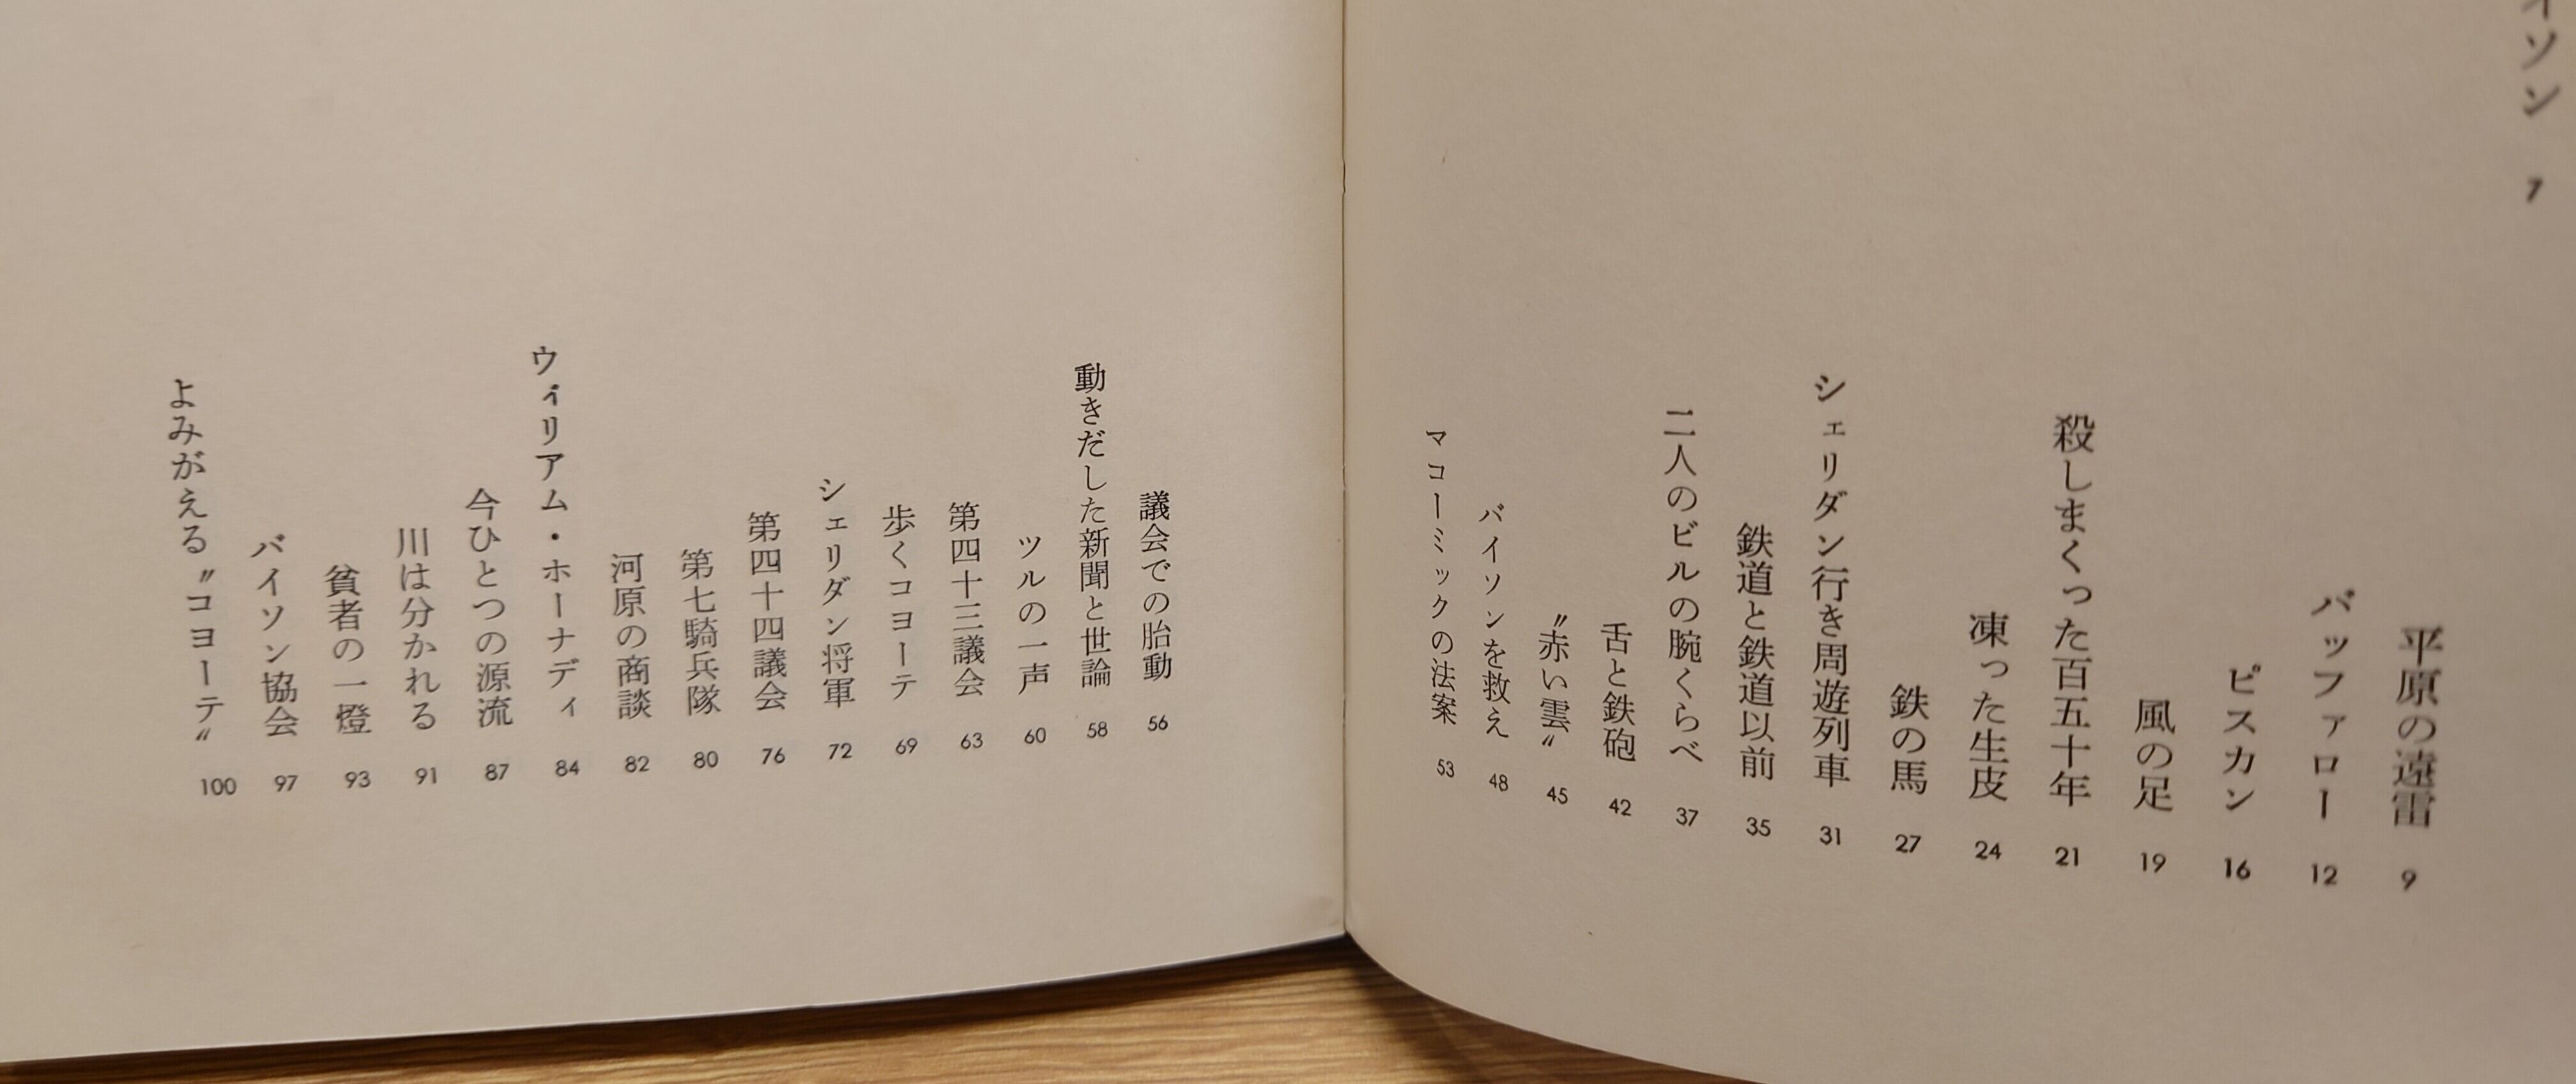 イソン 7
平原の遠雷 9
バッファロー 12
ピスカン 16
風の足 19
殺しまくった百五十年 21
凍った生皮 24
鉄の馬 27
シェリダン行き周遊列車 31
鉄道と鉄道以前 35
二人のビルの腕くらべ 37
舌と鉄砲 42
〝赤い雲〟 45
バイソンを救え 48
マコーミックの法案 53
議会での胎動 56
動きだした新聞と世論 58
ツルの一声 60
第四十三議会 63
歩くコヨーテ 69
シェリダン将軍 72
第四十四議会 76
第七騎兵隊 80
河原の商談 82
ウィリアム・ホーナディ 84
今ひとつの源流 87
川は分かれる 91
貧者の一燈 93
バイソン協会 97
よみがえる〝コヨーテ〟 100